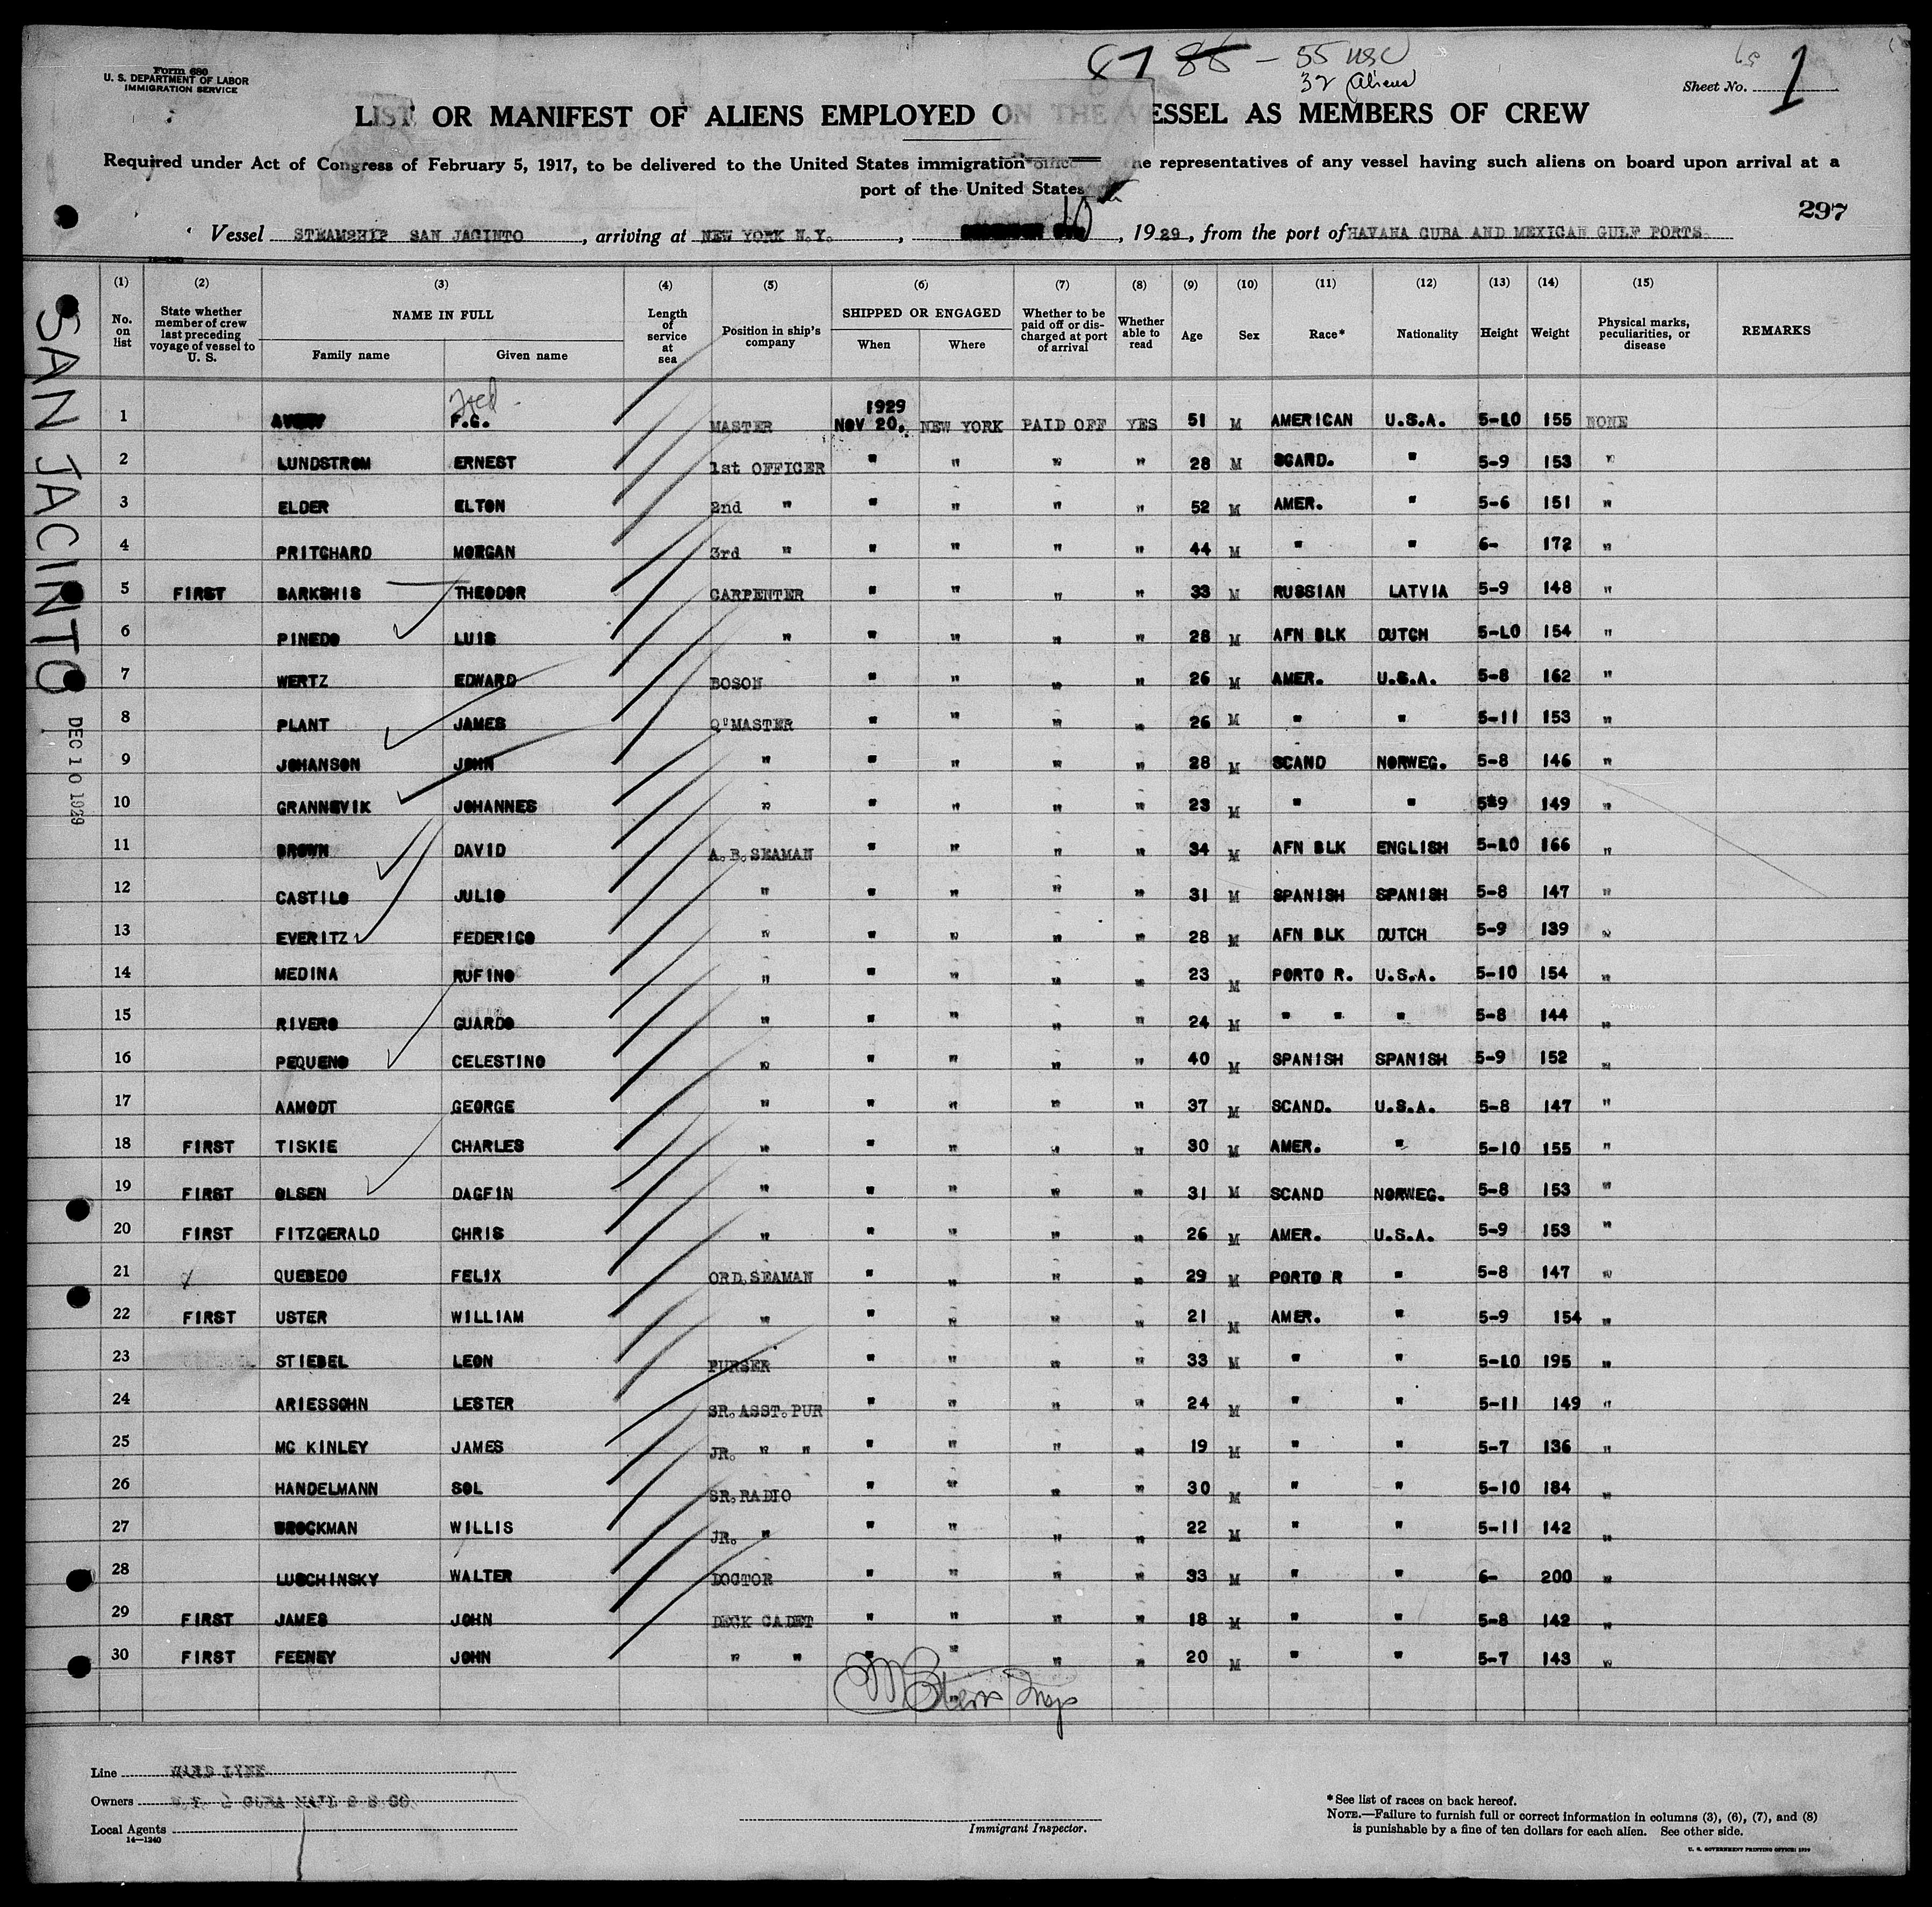 87 86 - 55 USC
32 Aliens
Form 680
U. S. DEPARTMENT OF LABOR
IMMIGRATION SERVICE
Sheet No. 1
LIST OR MANIFEST OF ALIENS EMPLOYED ON THE VESSEL AS MEMBERS OF CREW
Required under Act of Congress of February 5, 1917, to be delivered to the United States immigration he representatives of any vessel having such aliens on board upon arrival at a
port of the United States
297
Vessel STEAMSHIP SAN JACINTO, arriving at NEW YORK N.Y., 10, 1929, from the port of HAVANA CUBA AND MEXICAN GULF PORTS.
SAN JACINTO
DEC 10 1929
(1) (2) (3) (4) (5) (6) (7) (8) (9) (10) (11) (12) (13) (14) (15)
No. on list
State whether member of crew last preceding voyage of vessel to U. S.
NAME IN FULL
Family name Given name
Length of service at sea
Position in ship's company
SHIPPED OR ENGAGED
When Where
Whether to be paid off or discharged at port of arrival
Whether able to read
Age Sex Race* Nationality Height Weight
Physical marks, peculiarities, or disease
REMARKS
1 F.G. MASTER 1929 NOV 20. NEW YORK PAID OFF YES 51 M AMERICAN U.S.A. 5-10 155 NONE
2 LUNDSTROM ERNEST 1st OFFICER " " " " 28 M SCAND. " 5-9 153 "
3 ELDER ELTON 2nd " " " " " 52 M AMER. " 5-6 151 "
4 PRITCHARD MORGAN 3rd " " " " " 44 M " " 6- 172 "
5 FIRST BARKSHIS THEODOR CARPENTER " " " " 33 M RUSSIAN LATVIA 5-9 148 "
6 PINEDO LUIS " " " " " 28 M AFN BLK DUTCH 5-10 154 "
7 WERTZ EDWARD BOSON " " " " 26 M AMER. U.S.A. 5-8 162 "
8 PLANT JAMES Q'MASTER " " " " 26 M " " 5-11 153 "
9 JOHANSON JOHN " " " " " 28 M SCAND NORWEG. 5-8 146 "
10 GRANNEVIK JOHANNES " " " " " 23 M " " 5-9 149 "
11 BROWN DAVID A.B.SEAMAN " " " " 34 M AFN BLK ENGLISH 5-10 166 "
12 CASTILO JULIO " " " " " 31 M SPANISH SPANISH 5-8 147 "
13 EVERITZ FEDERICO " " " " " 28 M AFN BLK DUTCH 5-9 139 "
14 MEDINA RUFINO " " " " " 23 M PORTO R. U.S.A. 5-10 154 "
15 RIVERO GUARDO " " " " " 24 M " " " 5-8 144 "
16 PEQUENO CELESTINO " " " " " 40 M SPANISH SPANISH 5-9 152 "
17 AAMODT GEORGE " " " " " 37 M SCAND. U.S.A. 5-8 147 "
18 FIRST TISKIE CHARLES " " " " " 30 M AMER. " 5-10 155 "
19 FIRST OLSEN DAGFIN " " " " " 31 M SCAND NORWEG. 5-8 153 "
20 FIRST FITZGERALD CHRIS " " " " " 26 M AMER. U.S.A. 5-9 153 "
21 QUEBEDO FELIX ORD.SEAMAN " " " " 29 M PORTO R " 5-8 147 "
22 FIRST USTER WILLIAM " " " " " 21 M AMER. " 5-9 154 "
23 STIEBEL LEON PURSER " " " " 33 M " " 5-10 195 "
24 ARIESSOHN LESTER SR.ASST.PUR " " " " 24 M " " 5-11 149 "
25 MC KINLEY JAMES JR. " " " " " " 19 M " " 5-7 136 "
26 HANDELMANN SOL SR.RADIO " " " " 30 M " " 5-10 184 "
27 BROCKMAN WILLIS JR. " " " " " 22 M " " 5-11 142 "
28 LUSCHINSKY WALTER DOCTOR " " " " 33 M " " 6- 200 "
29 FIRST JAMES JOHN DECK CADET " " " " 18 M " " 5-8 142 "
30 FIRST FEENEY JOHN " " " " " " 20 M " " 5-7 143 "
Line WARD LINE
Owners N.Y. & CUBA MAIL S S CO.
Local Agents
14—1240
Immigrant Inspector.
*See list of races on back hereof.
NOTE.—Failure to furnish full or correct information in columns (3), (6), (7), and (8)
is punishable by a fine of ten dollars for each alien. See other side.